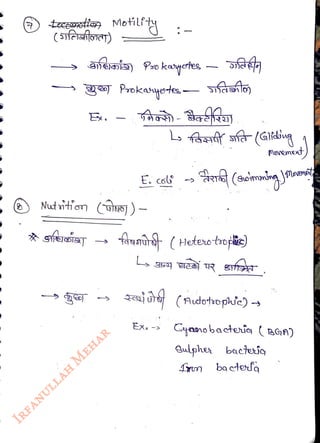 ⑦ Locomotion Motility :-
(गतिशीलता)
→ अधिकांश Prokaryotes — गतिहीन
→ कुछ Prokaryotes — गतिशील
Ex. - मिक्सो - बैक्टीरिया
↳ विसर्पी गति (Gliding
Movement)
E. coli → तैराकी (Swimming) Movement
⑧ Nutrition (पोषण) -
* अधिकांश → विषमपोषी (Heterotrophic)
↳ अन्य घटकों पर आश्रित
→ कुछ → स्वयंपोषी (Autotrophic) →
Ex. → Cyanobacteria (BGA)
Sulpher bacteria
Iron bacteria
IRFANULLAH MEHAR